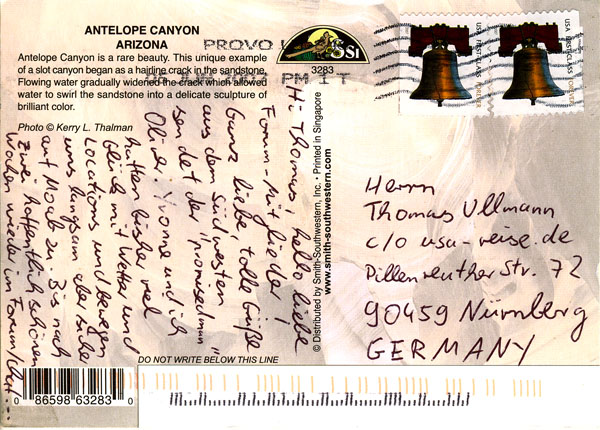 ANTELOPE CANYON
ARIZONA
Antelope Canyon is a rare beauty. This unique example
of a slot canyon began as a hairline crack in the sandstone.
Flowing water gradually widened the crack which allowed
water to swirl the sandstone into a delicate sculpture of
brilliant color.
Photo © Kerry L. Thalman
PROVO
PM
SSi
3283
USA FIRST-CLASS FOREVER
USA FIRST-CLASS FOREVER
Hi Thomas, hello liebe
Forum-Mitglieder!
Ganz liebe, tolle Grüße
aus dem Südwesten
sendet der "promised man"
Oliver. Yvonne und ich
hatten bisher viel
Glück mit Wetter und
Locations und bewegen
uns langsam aber sicher
auf Moab zu. Bis nach
zwei hoffentlich schönen
Wochen wieder im Forum/
© Distributed by Smith-Southwestern, Inc. • Printed in Singapore
www.smith-southwestern.com
Herrn
Thomas Ullmann
c/o usa-reise.de
Dillenreuther Str. 72
90459 Nürnberg
GERMANY
DO NOT WRITE BELOW THIS LINE
0 86598 63283 0